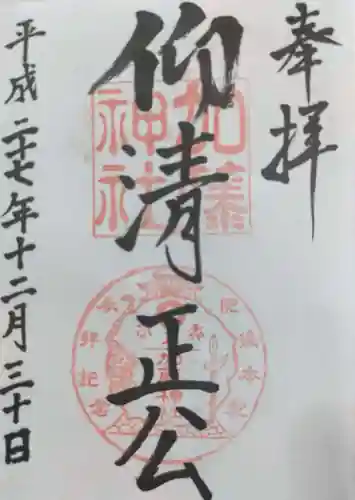 奉拝
仰清正公
加藤神社
平成二十七年十二月三十日